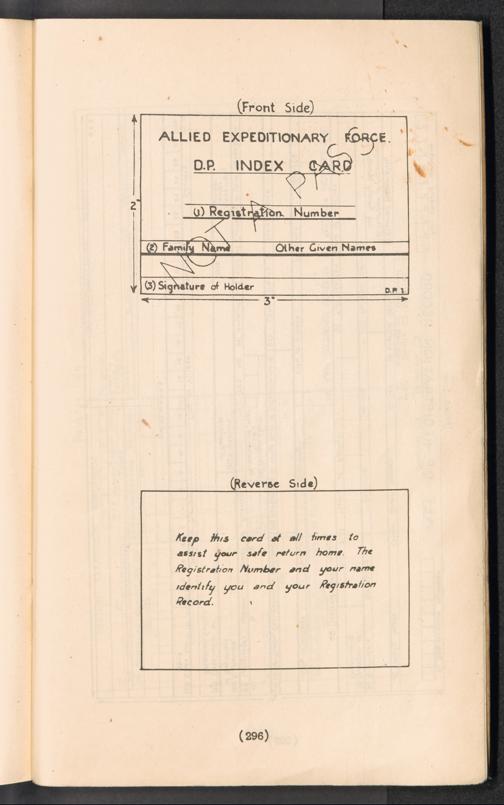 (Front Side)
ALLIED EXPEDITIONARY FORCE.
D.P. INDEX CARD
NOT A PASS
2"
(1) Registration Number
(2) Family Name Other Given Names
(3) Signature of Holder D.P. 1
3"
(Reverse Side)
Keep this card at all times to
assist your safe return home. The
Registration Number and your name
identify you and your Registration
Record.
(296)